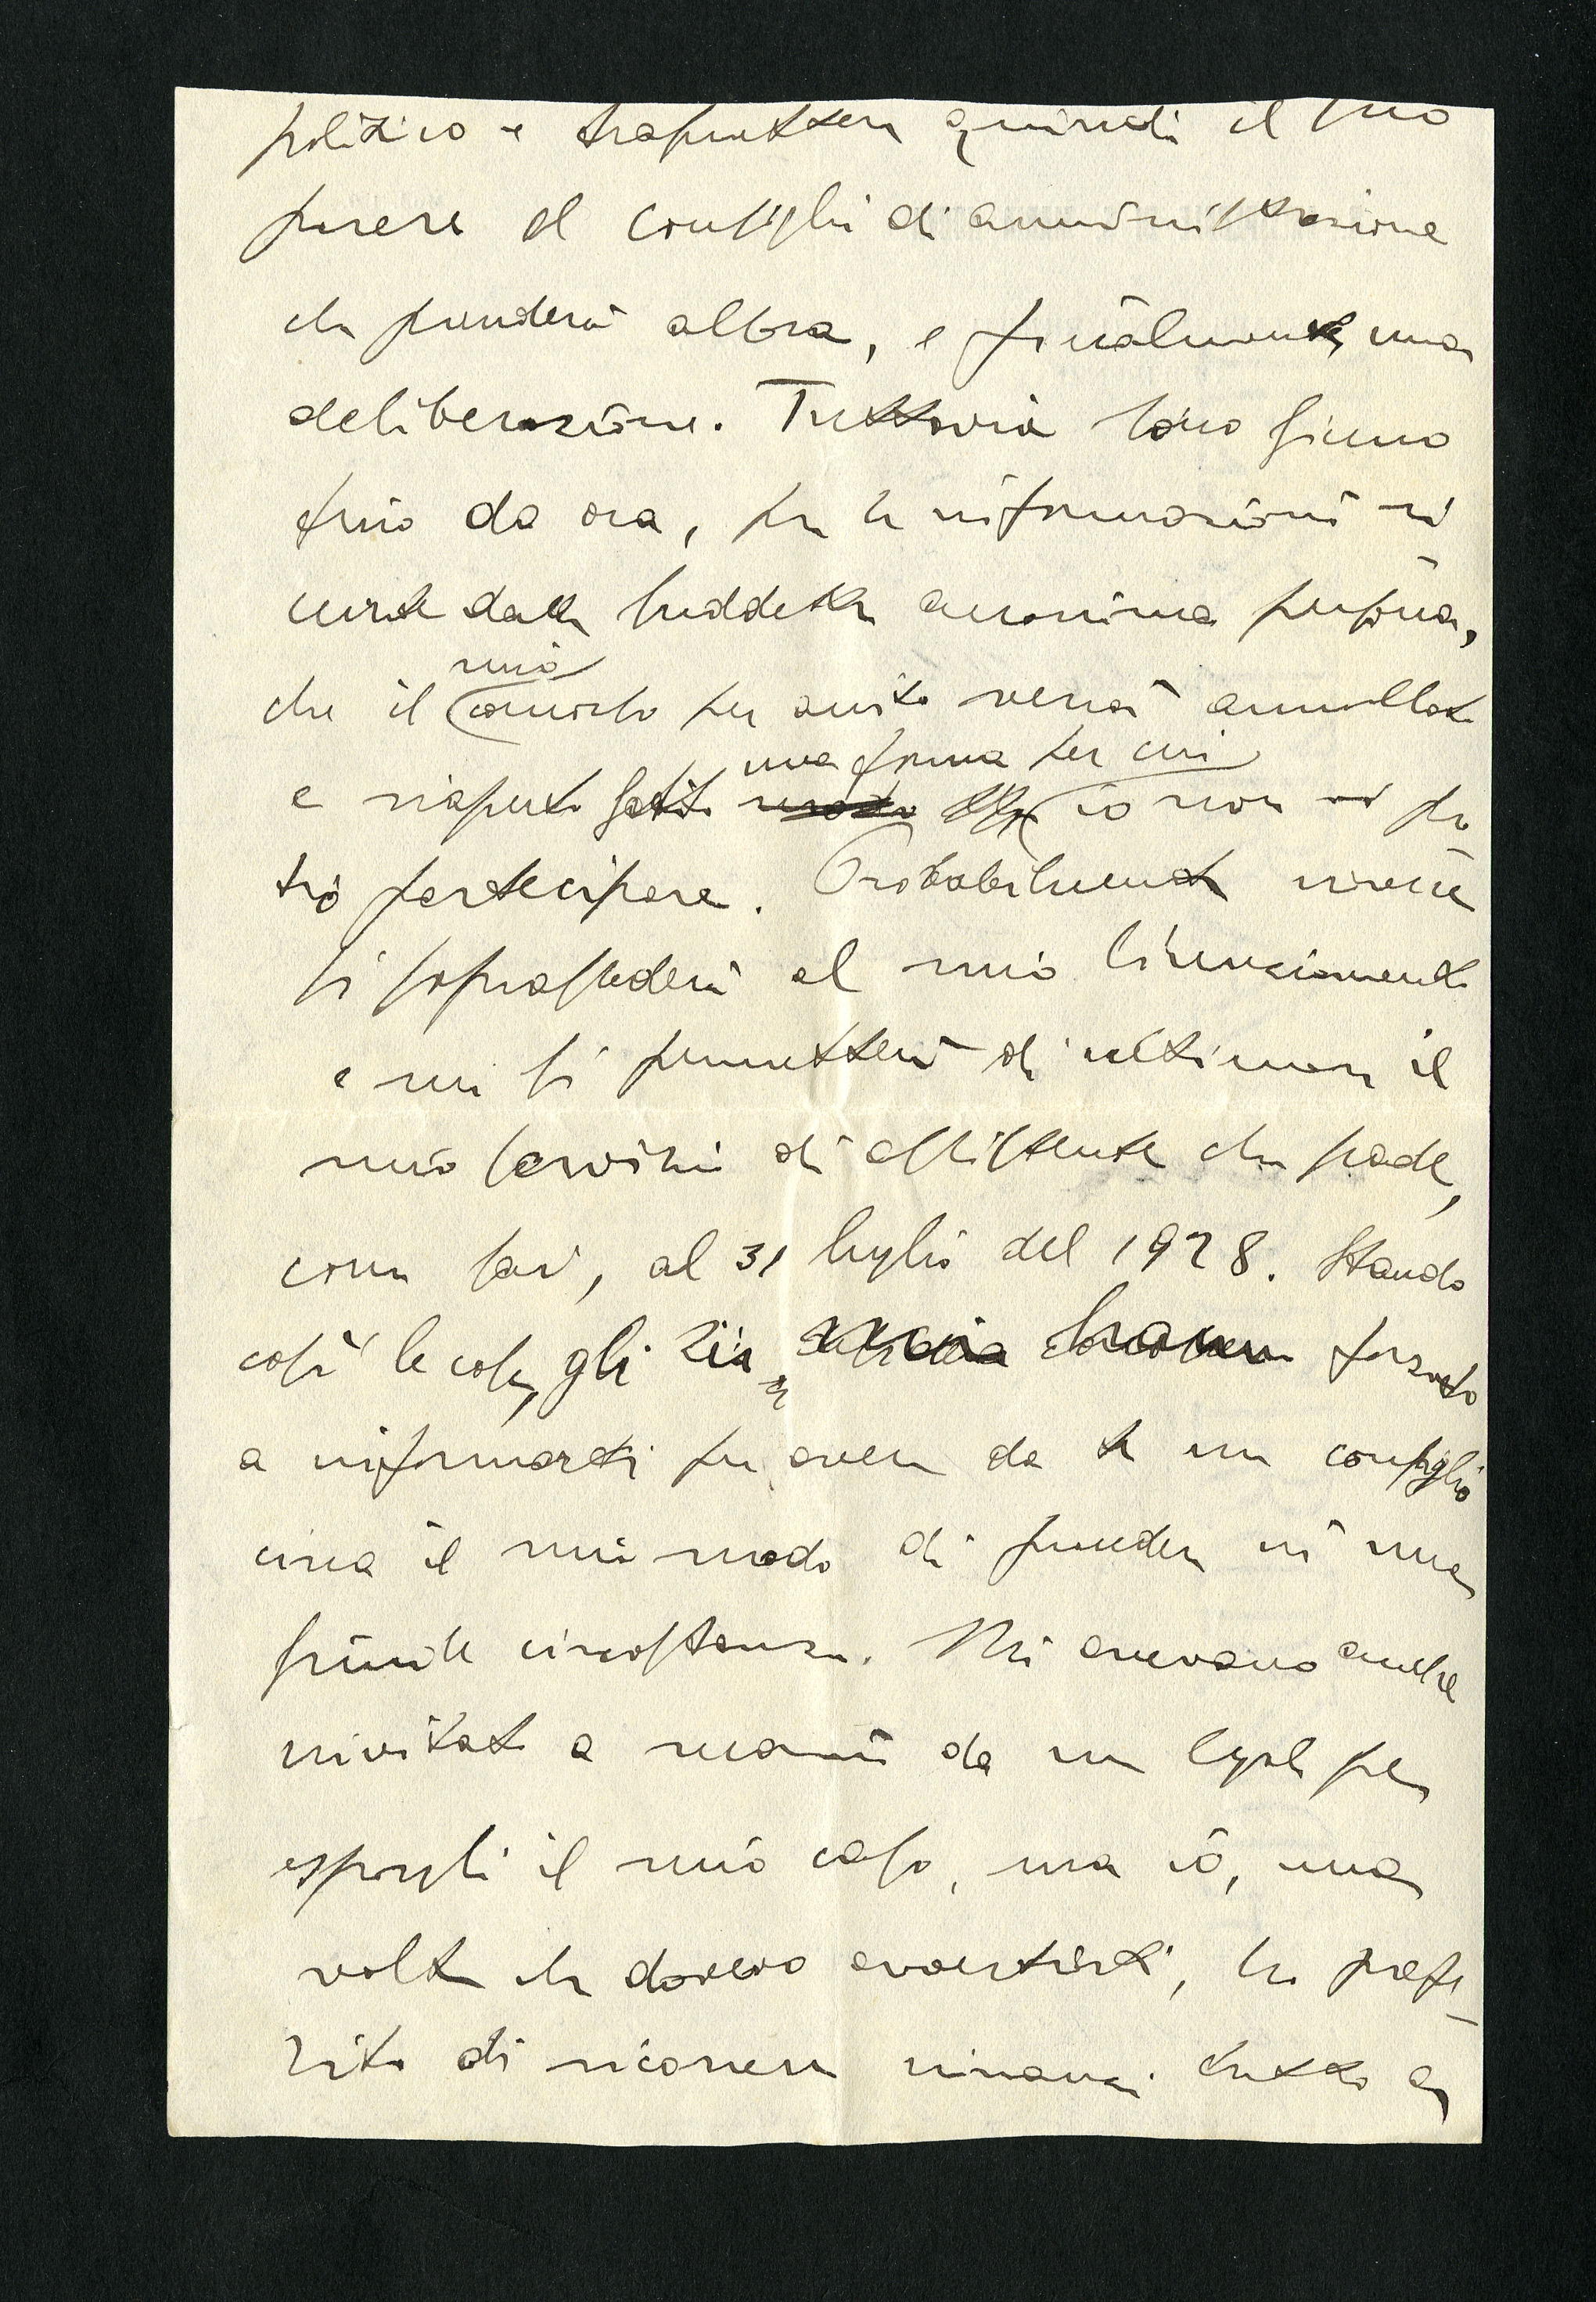 politico e trasmettere quindi il suo
parere al consiglio di amministrazione
che prenderà allora, e finalmente, una
deliberazione. Tuttavia sono sicuro
fino da ora, per le informazioni ri
cevute dalla suddetta anonima persona,
mio
che il concorso per aiuto verrà annullato
una forma per cui
e riaperto sotto modo io non vi po
trò partecipare. Probabilmente invece
si soprassederà al mio licenziamento
e mi si permetterà di ultimare il
mio servizio di assistente che scade,
come sai, al 31 luglio del 1928. Stando
così le cose, gli zii forzato
a informarti per avere da te un consiglio
circa il mio modo di procedere in una
simile circostanza. Mi avevano anche
invitato a recarmi da un legale per
esporgli il mio caso, ma io, una
volta che dovevo avvertirti, ho prefe-
rito di ricorrere innanzi tutto a